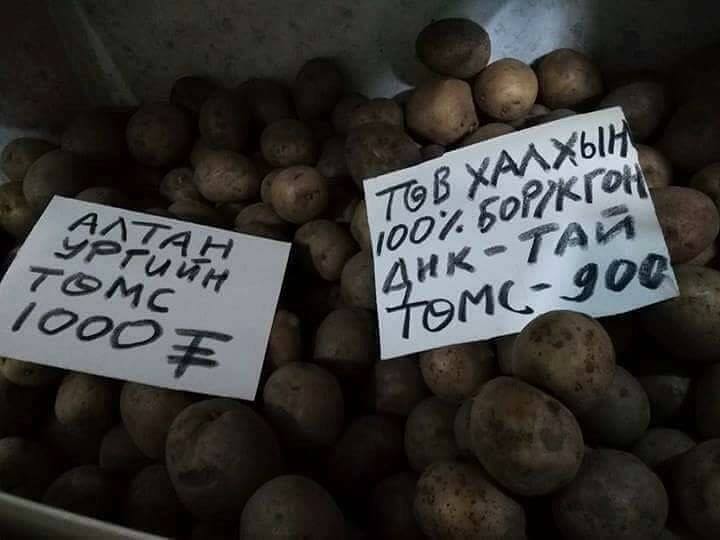 АЛТАН
УРГИЙН
ТӨМС
1000₮
ТӨВ ХАЛХЫН
100% БОРЖГОН
ДНК-ТАЙ
ТӨМС-900